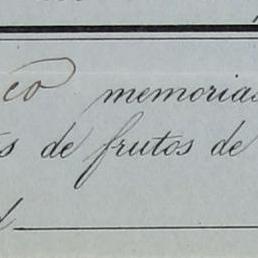 co memorias
s de frutos de